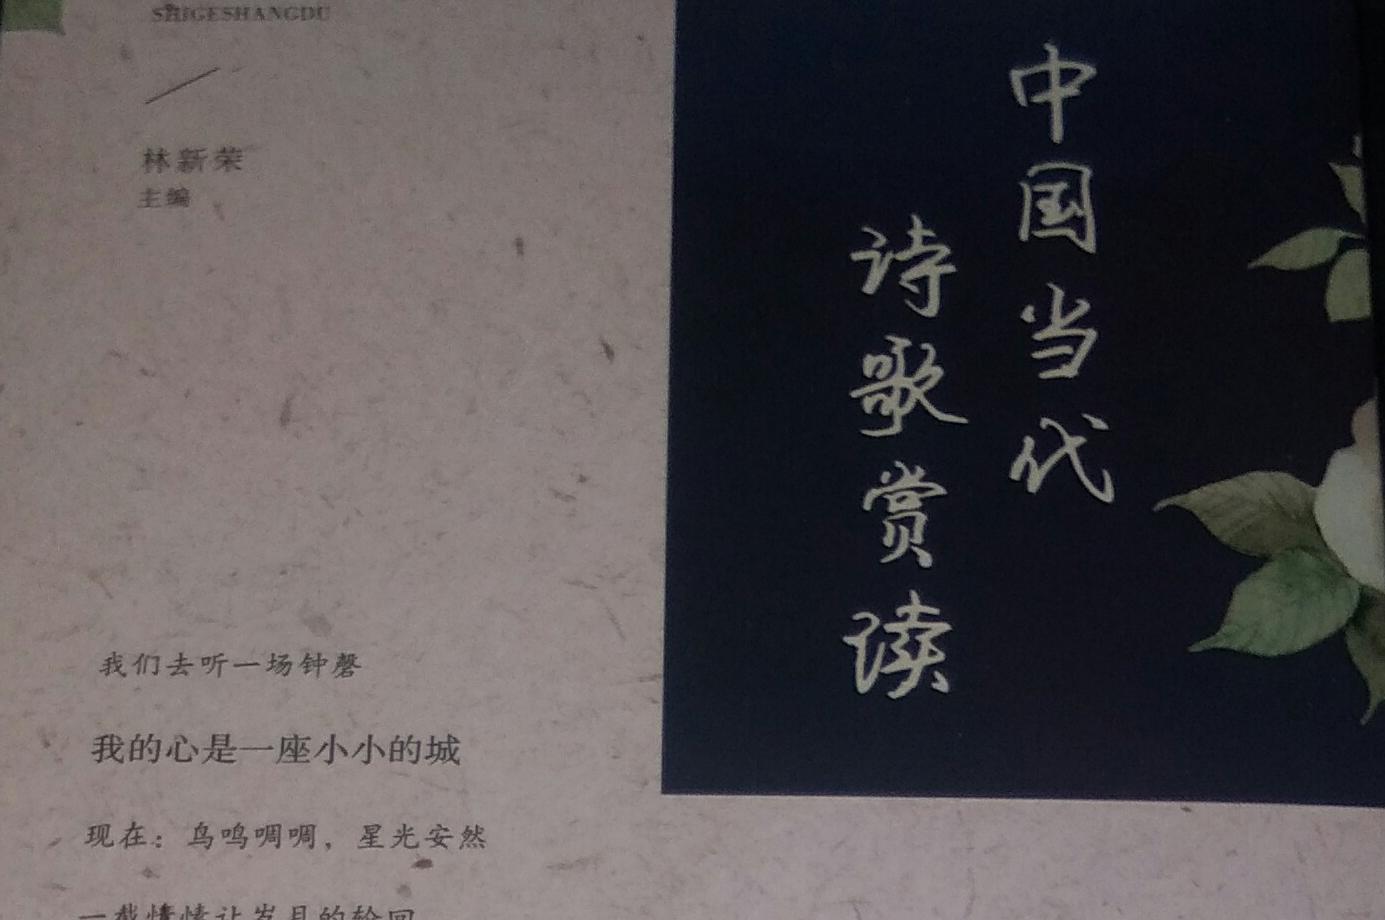 SHIGESHANGDU
林新荣
主编
中国当代
诗歌赏读
我们去听一场钟磬
我的心是一座小小的城
现在：鸟鸣啁啁，星光安然
让岁月的轮回